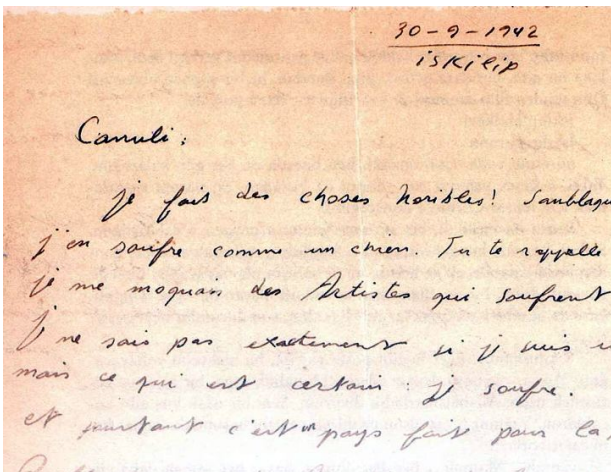 30-9-1942
iskilip
Canuli:
je fais des choses horibles! Sanblague
j'en soufre comme un chien. Tu te rappelle
je me moquais des Artistes qui soufrent
je ne sais pas exactement si je suis
mais ce qui est certain je soufre.
et pourtant c'est un pays fait pour la